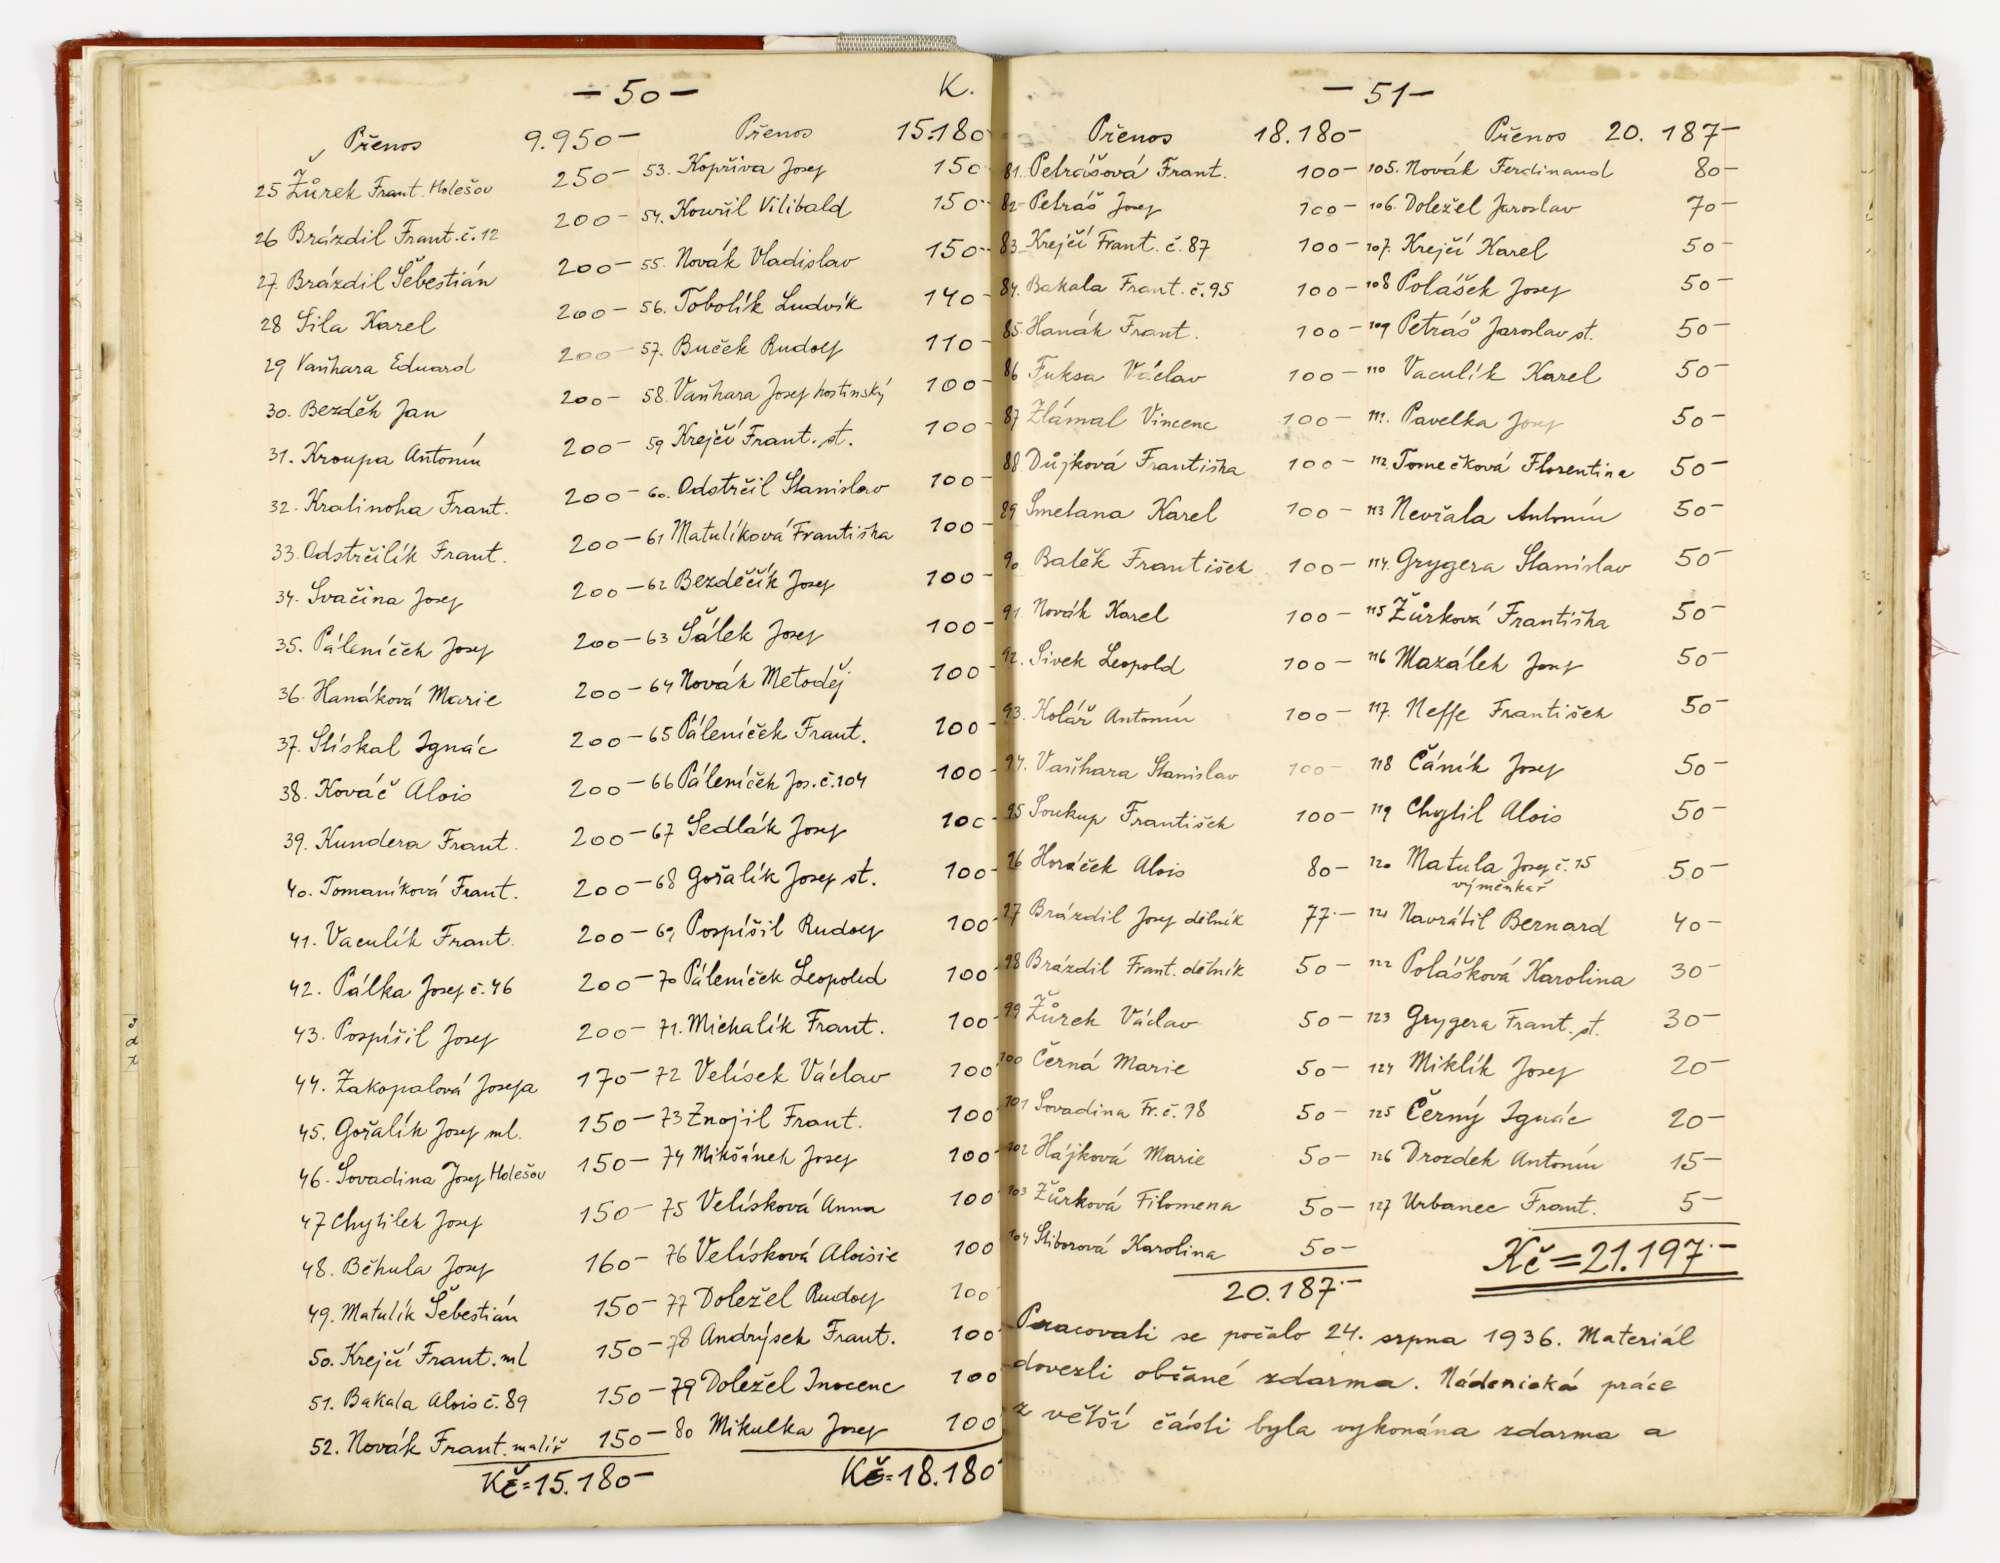 — 50 —
K.
Přenos 9.950—
25 Žůrek Frant. Holešov 250—
26 Brázdil Frant. č. 12 200—
27. Brázdil Šebestián 200—
28 Sila Karel 200—
29 Vaňhara Eduard 200—
30. Bezděk Jan 200—
31. Kroupa Antonín 200—
32. Kratinoha Frant. 200—
33. Odstrčilík Frant. 200—
34. Svačina Josef 200—
35. Páleníček Josef 200—
36. Hanáková Marie 200—
37. Stískal Ignác 200—
38. Kováč Alois 200—
39. Kundera Frant. 200—
40. Tomaníková Frant. 200—
41. Vaculík Frant. 200—
42. Pálka Josef č. 46 200—
43. Pospíšil Josef 200—
44. Zakopalová Josefa 170—
45. Gořalík Josef ml. 150—
46. Sovadina Josef Holešov 150—
47 Chytilek Josef 150—
48. Běhula Josef 160—
49. Matulík Šebestián 150—
50. Krejčí Frant. ml 150—
51. Bakala Alois č. 89 150—
52. Novák Frant. malíř 150—
Kč = 15.180—
Přenos 15.180
53. Kopřiva Josef 150
54. Kouřil Vilibald 150—
55. Novák Vladislav 150—
56. Tobolík Ludvík 140—
57. Buček Rudolf 110—
58. Vaňhara Josef hostinský 100—
59 Krejčí Frant. st. 100—
60. Odstrčil Stanislav 100—
61 Matulíková Františka 100—
62 Bezděčík Josef 100—
63 Šálek Josef 100—
64 Novák Metoděj 100
65 Páleníček Frant. 100—
66 Páleníček Jos. č. 104 100—
67 Sedlák Josef 100—
68 Gořalík Josef st. 100—
69 Pospíšil Rudolf 100—
70 Páleníček Leopold 100—
71. Michalík Frant. 100—
72 Velísek Václav 100
73 Znojil Frant. 100
74 Mikšánek Josef 100—
75 Velísková Anna 100
76 Velísková Aloisie 100
77 Doležel Rudolf 100
78 Andrýsek Frant. 100
79 Doležel Inocenc 100
80 Mikulka Josef 100
Kč = 18.180
— 51 —
Přenos 18.180—
81. Petrášová Frant. 100—
82 Petráš Josef 100—
83 Krejčí Frant. č. 87 100—
84. Bakala Frant. č. 95 100—
85 Hanák Frant. 100—
86 Fuksa Václav 100—
87 Zlámal Vincenc 100—
88 Důjková Františka 100—
89 Smetana Karel 100—
90 Balék František 100—
91 Novák Karel 100—
92. Sivek Leopold 100—
93. Kolář Antonín 100—
94. Vaňhara Stanislav 100—
95 Soukup František 100—
96 Horáček Alois 80—
97 Brázdil Josef dělník 77.—
98 Brázdil Frant. dělník 50—
99 Žůrek Václav 50—
100 Černá Marie 50—
101 Sovadina Fr. č. 98 50—
102 Hájková Marie 50—
103 Žůrková Filomena 50—
104 Stiborová Karolina 50—
20.187.—
Přenos 20.187—
105. Novák Ferdinand 80—
106. Doležel Jaroslav 70—
107. Krejčí Karel 50—
108 Polášek Josef 50—
109 Petráš Jaroslav st. 50—
110 Vaculík Karel 50—
111. Pavelka Josef 50—
112 Tomečková Florentina 50—
113 Nevřala Antonín 50—
114. Grygera Stanislav 50—
115 Žůrková Františka 50—
116 Mazálek Josef 50—
117. Neffe František 50—
118 Čáník Josef 50—
119 Chytil Alois 50—
120 Matula Josef č. 15 50—
výměnkař
121 Navrátil Bernard 40—
122 Polášková Karolina 30—
123 Grygera Frant. st. 30—
124 Miklík Josef 20—
125 Černý Ignác 20—
126 Drozdek Antonín 15—
127 Urbanec Frant. 5—
Kč = 21.197.—
Pracovati se počalo 24. srpna 1936. Materiál
dovezli občané zdarma. Nádenická práce
z větší části byla vykonána zdarma a